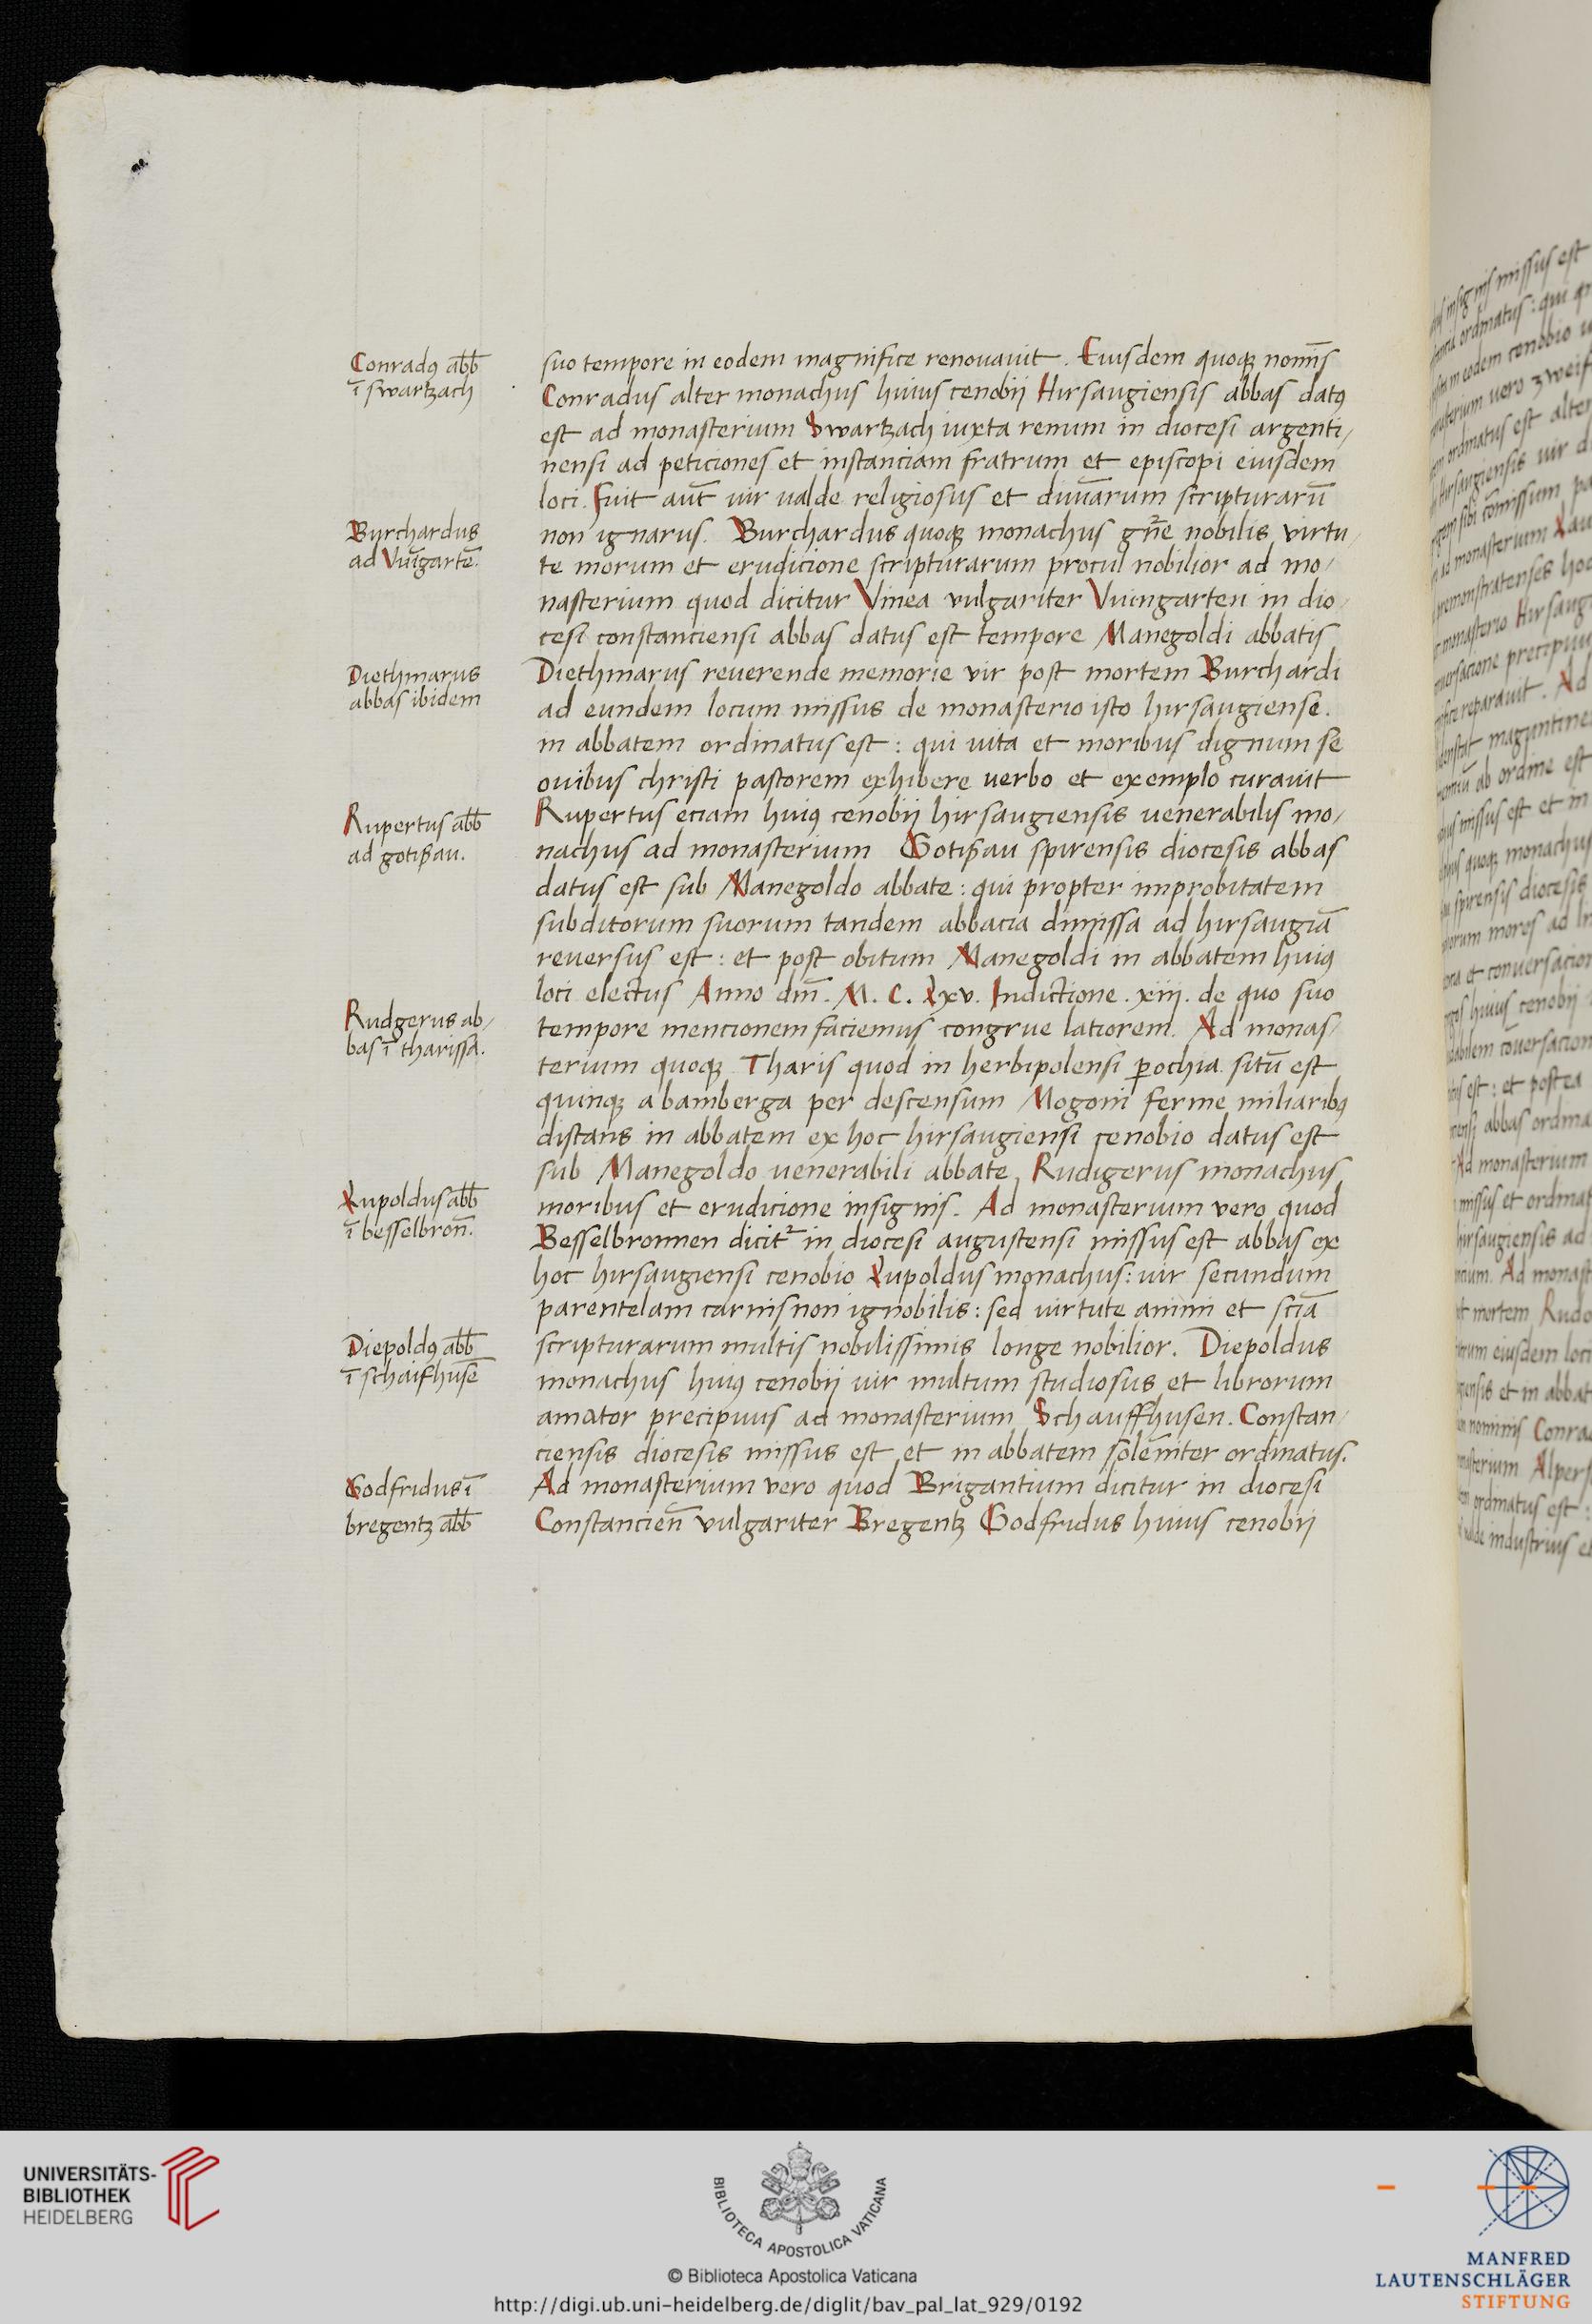 Conradꝰ abb̄
ī swartzach
Burchardus
ad Vuīgartē.
Diethmarus
abbas ibidem
Rupertus abb̄
ad gotißau.
Rudgerus ab/
bas ī tharissa.
Lupoldus abb̄
ī besselbron̄.
Diepoldꝰ abb̄
ī schaifhusē
Godfridus ī
bregentz abb̄
suo tempore in eodem magnifice renouauit. Eiusdem quoqꝫ nomīs
Conradus alter monachus huius cenobij Hirsaugiensis abbas datꝰ
est ad monasterium Swartzach iuxta renum in diocesi argenti/
nensi ad peticiones et instanciam fratrum et episcopi eiusdem
loci. Fuit aut̄ uir ualde religiosus et diuīarum scripturarū
non ignarus. Burchardus quoqꝫ monachus gn̄e nobilis virtu/
te morum et erudicione scripturarum procul nobilior ad mo/
nasterium quod dicitur Vinea vulgariter Vuingarten in dio/
cesi constanciensi abbas datus est tempore Manegoldi abbatis
Diethmarus reuerende memorie vir post mortem Burchardi
ad eundem locum missus de monasterio isto hirsaugiense.
in abbatem ordinatus est: qui uita et moribus dignum se
ouibus christi pastorem exhibere uerbo et exemplo curauit
Rupertus eciam huiꝰ cenobij hirsaugiensis uenerabilis mo/
nachus ad monasterium Gotißau spirensis diocesis abbas
datus est sub Manegoldo abbate: qui propter improbitatem
subditorum suorum tandem abbacia dimissa ad hirsaugiā
reuersus est: et post obitum Manegoldi in abbatem huiꝰ
loci electus Anno dm̄. M. C. Lxv. Indictione. xiij. de quo suo
tempore mencionem faciemus congrue latiorem. Ad monas/
terium quoqꝫ Tharis quod in herbipolensi ꝑochia situ̅ est
quinqꝫ a bamberga per descensum Mogoni ferme miliaribꝰ
distans in abbatem ex hoc hirsaugiensi cenobio datus est
sub Manegoldo uenerabili abbate Rudigerus monachus
moribus et erudicione insignis. Ad monasterium vero quod
Besselbronnen dicit᷑ in diocesi augustensi missus est abbas ex
hoc hirsaugiensi cenobio Lupoldus monachus: uir secundum
parentelam carnis non ignobilis: sed uirtute animi et sciā
scripturarum multis nobilissimis longe nobilior. Diepoldus
monachus huiꝰ cenobij uir multum studiosus et librorum
amator precipuus ad monasterium Schauffhusen. Constan/
ciensis diocesis missus est et in abbatem solēniter ordinatus.
Ad monasterium vero quod Brigantium dicitur in diocesi
Constancien̄ vulgariter Bregentz Godfridus huius cenobij
UNIVERSITÄTS-
BIBLIOTHEK
HEIDELBERG
BIBLIOTECA APOSTOLICA VATICANA
© Biblioteca Apostolica Vaticana
http://digi.ub.uni-heidelberg.de/diglit/bav_pal_lat_929/0192
MANFRED
LAUTENSCHLÄGER
STIFTUNG